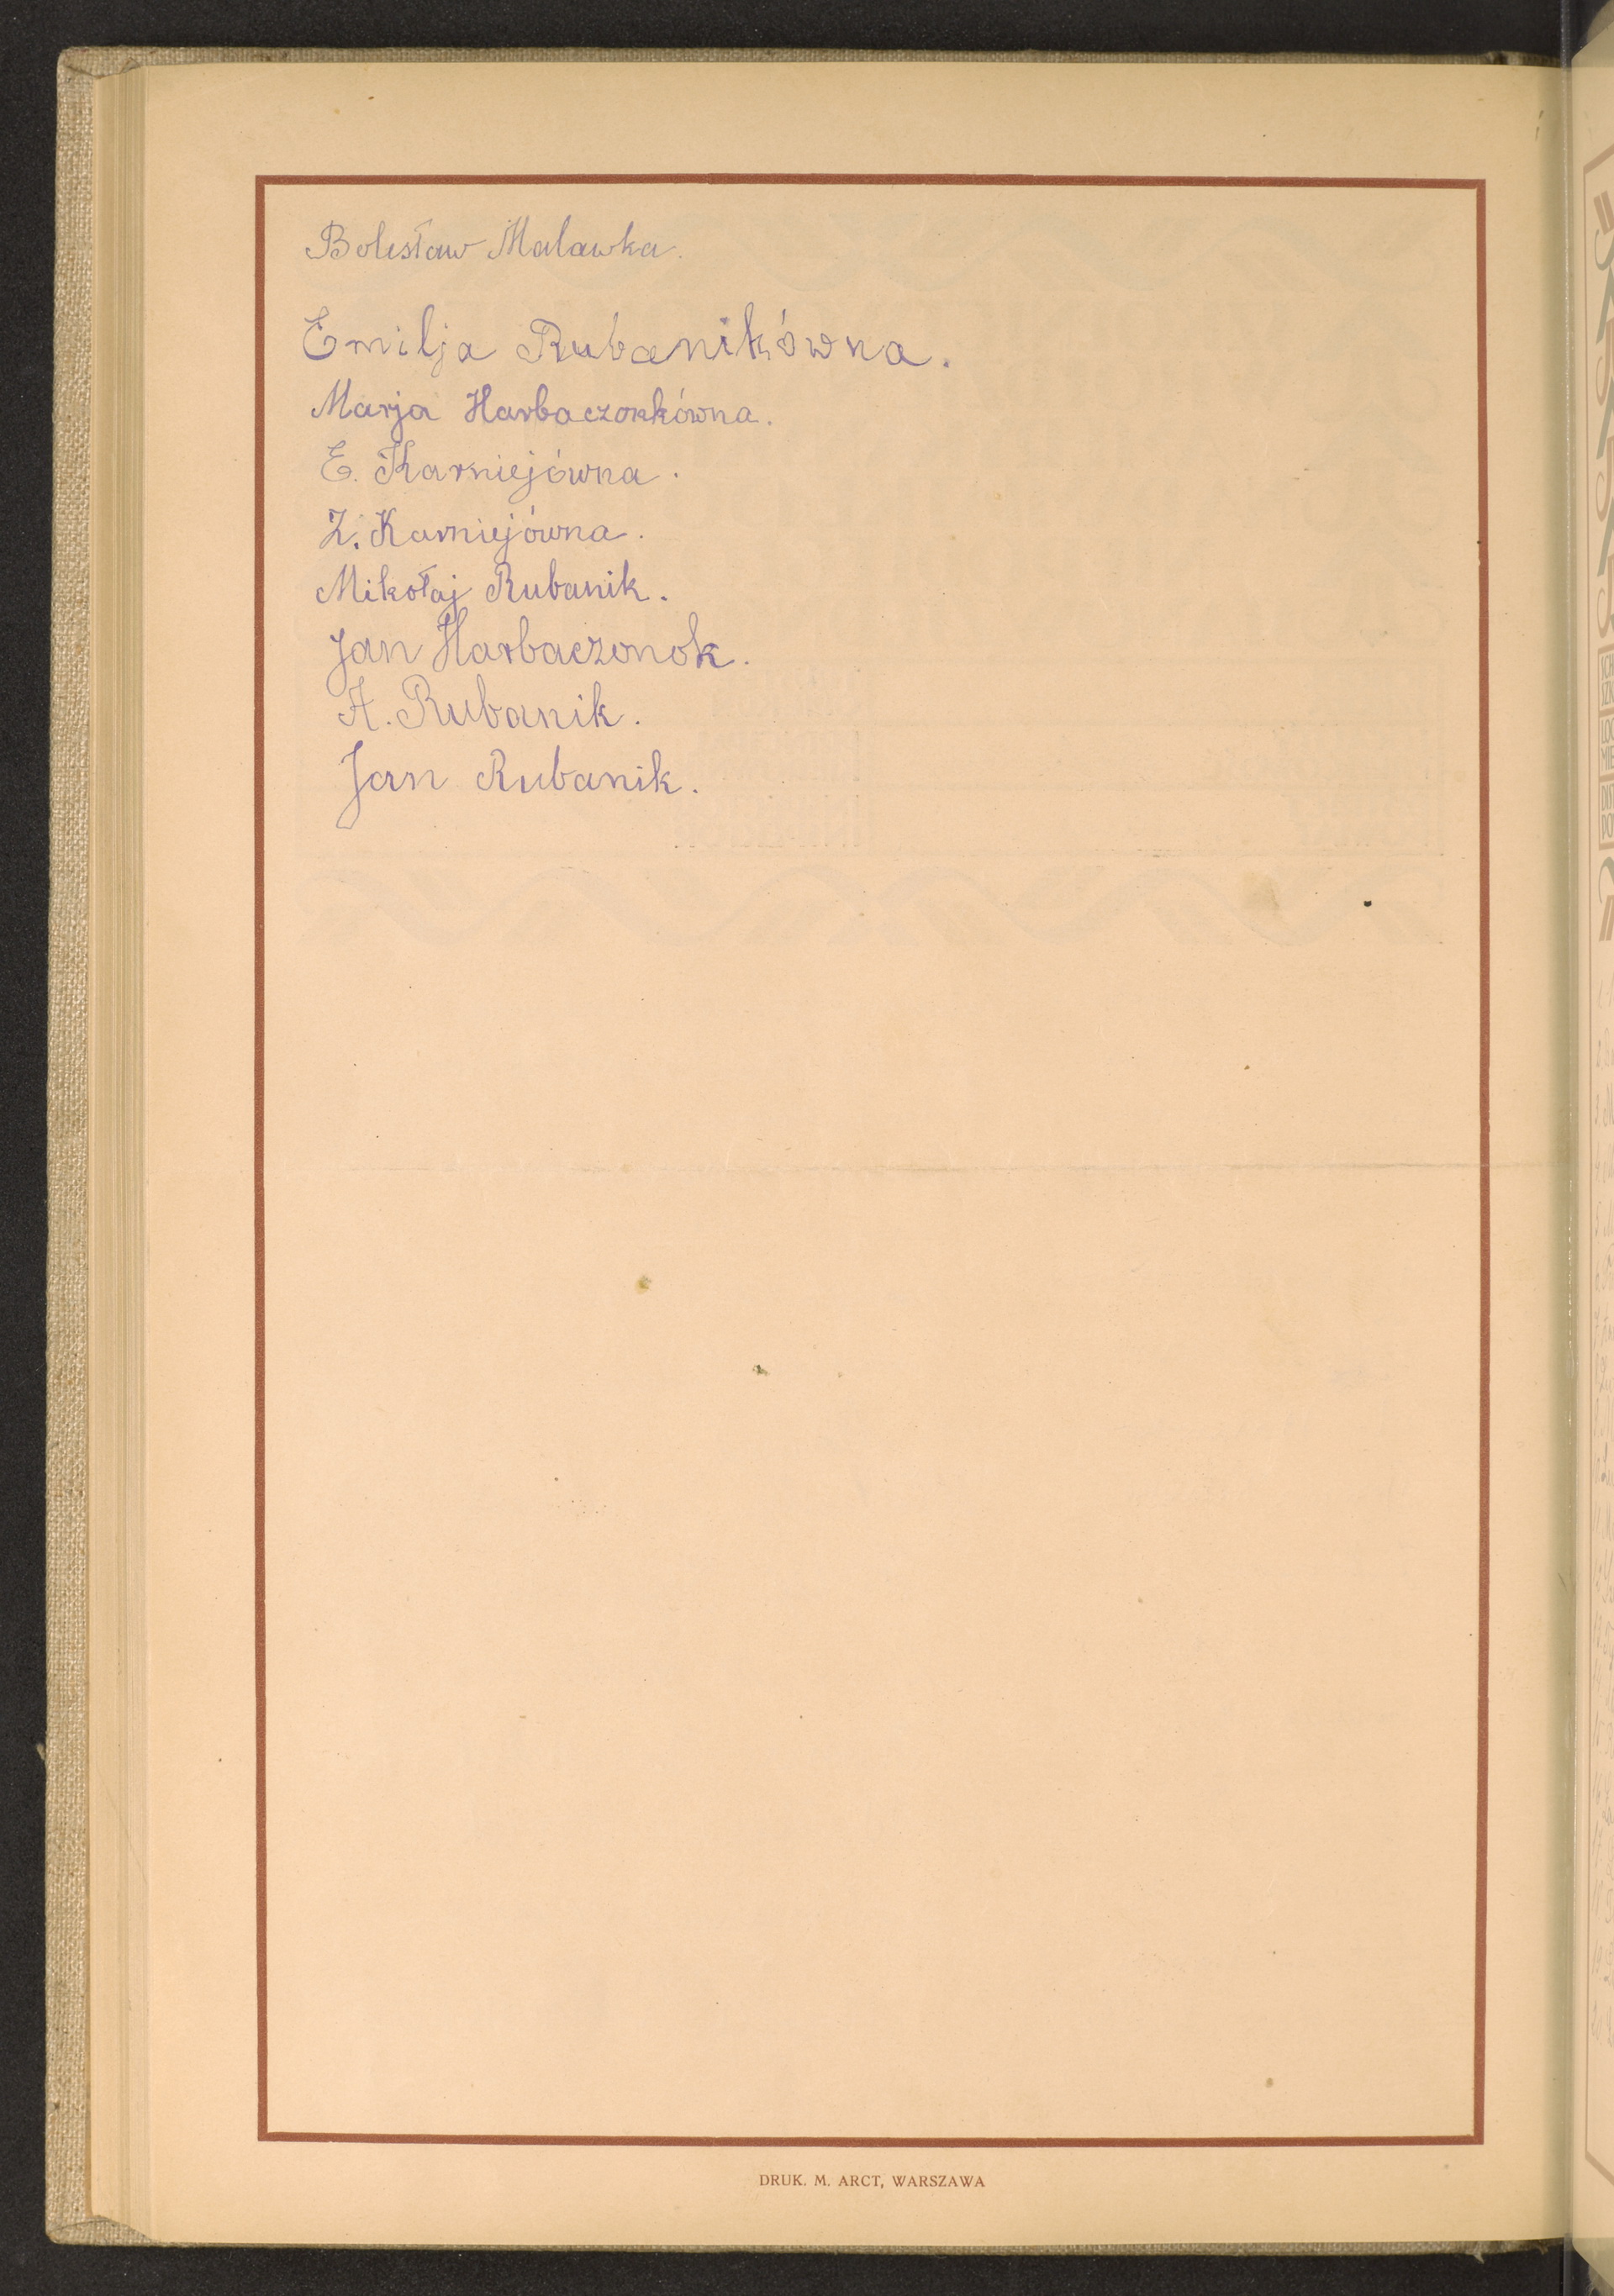 Bolesław Malawka.
Emilja Rubanikówna.
Marja Harbaczonkówna.
E. Karniejówna.
Z. Karniejówna.
Mikołaj Rubanik.
Jan Harbaczonok.
A. Rubanik.
Jan Rubanik.
DRUK. M. ARCT, WARSZAWA